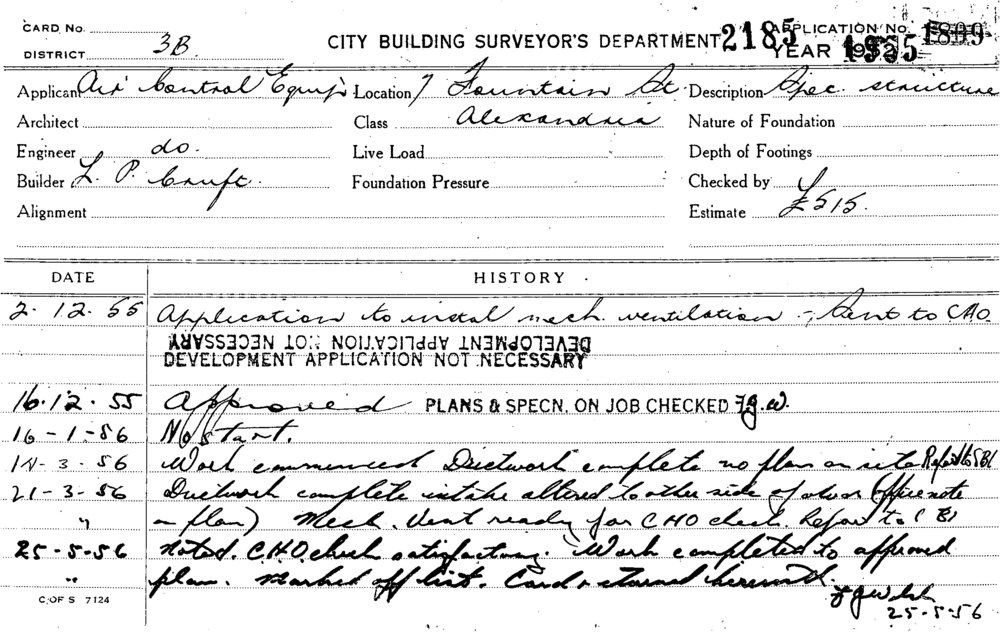 CARD No.
DISTRICT 3B
CITY BUILDING SURVEYOR'S DEPARTMENT 2185
APPLICATION No. 1899
YEAR 1955
Applicant Air Control Equip. Location 7 Fountain St. Description Spec. structure
Architect Class Alexandria Nature of Foundation
Engineer do. Live Load Depth of Footings
Builder L. P. Cruft. Foundation Pressure Checked by
Alignment Estimate £515.
DATE HISTORY
2. 12. 55 Application to instal mech. ventilation - Sent to CHO.
DEVELOPMENT APPLICATION NOT NECESSARY
DEVELOPMENT APPLICATION NOT NECESSARY
16. 12. 55 Approved PLANS & SPECN. ON JOB CHECKED F.J.W.
16 - 1 - 56 No start.
14 - 3 - 56 Work commenced Ductwork complete no plan on site Report to SBI
21 - 3 - 56 Ductwork complete intake altered to other side of door (Office note
" on plan) Mech. Vent ready for CHO check. Report to
25 - 5 - 56 Noted. C.H.O check satisfactory. Work completed to approved
" plan. Marked off list. Card returned herewith.
F J Welsh
25-5-56
C. OF S 7124